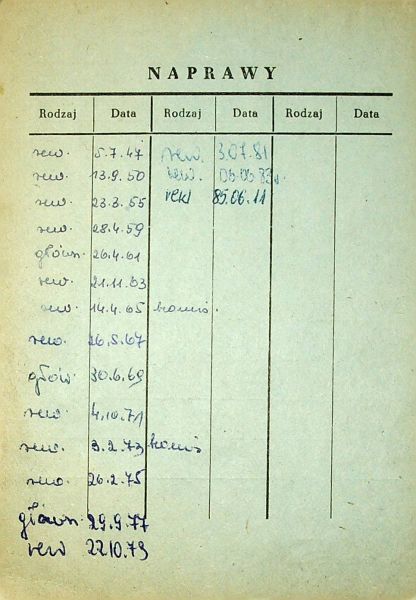 NAPRAWY
Rodzaj Data Rodzaj Data Rodzaj Data
rew. 5.7.47 rew. 3.07.81
rew. 13.9.50 rew. 06.06.83r.
rew. 23.3.55 rekl 85.06.11
rew. 28.4.59
główn. 26.4.61
rew. 21.11.63
rew. 14.4.65
rew. 26.5.67
głów. 30.6.69
rew. 4.10.71
rew. 3.2.73
rew. 26.2.75
główn. 29.9.77
rew 22.10.79